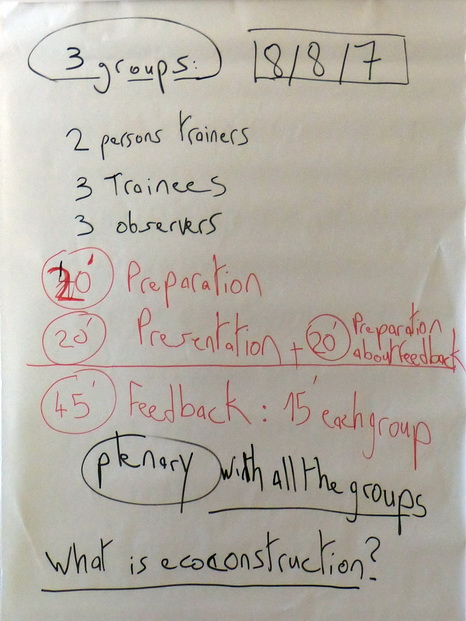 3 groups: 8/8/7
2 persons trainers
3 Trainees
3 observers
20' Preparation
20' Presentation + 20' Preparation about feedback
45' Feedback: 15' each group
plenary with all the groups
What is ecoconstruction?